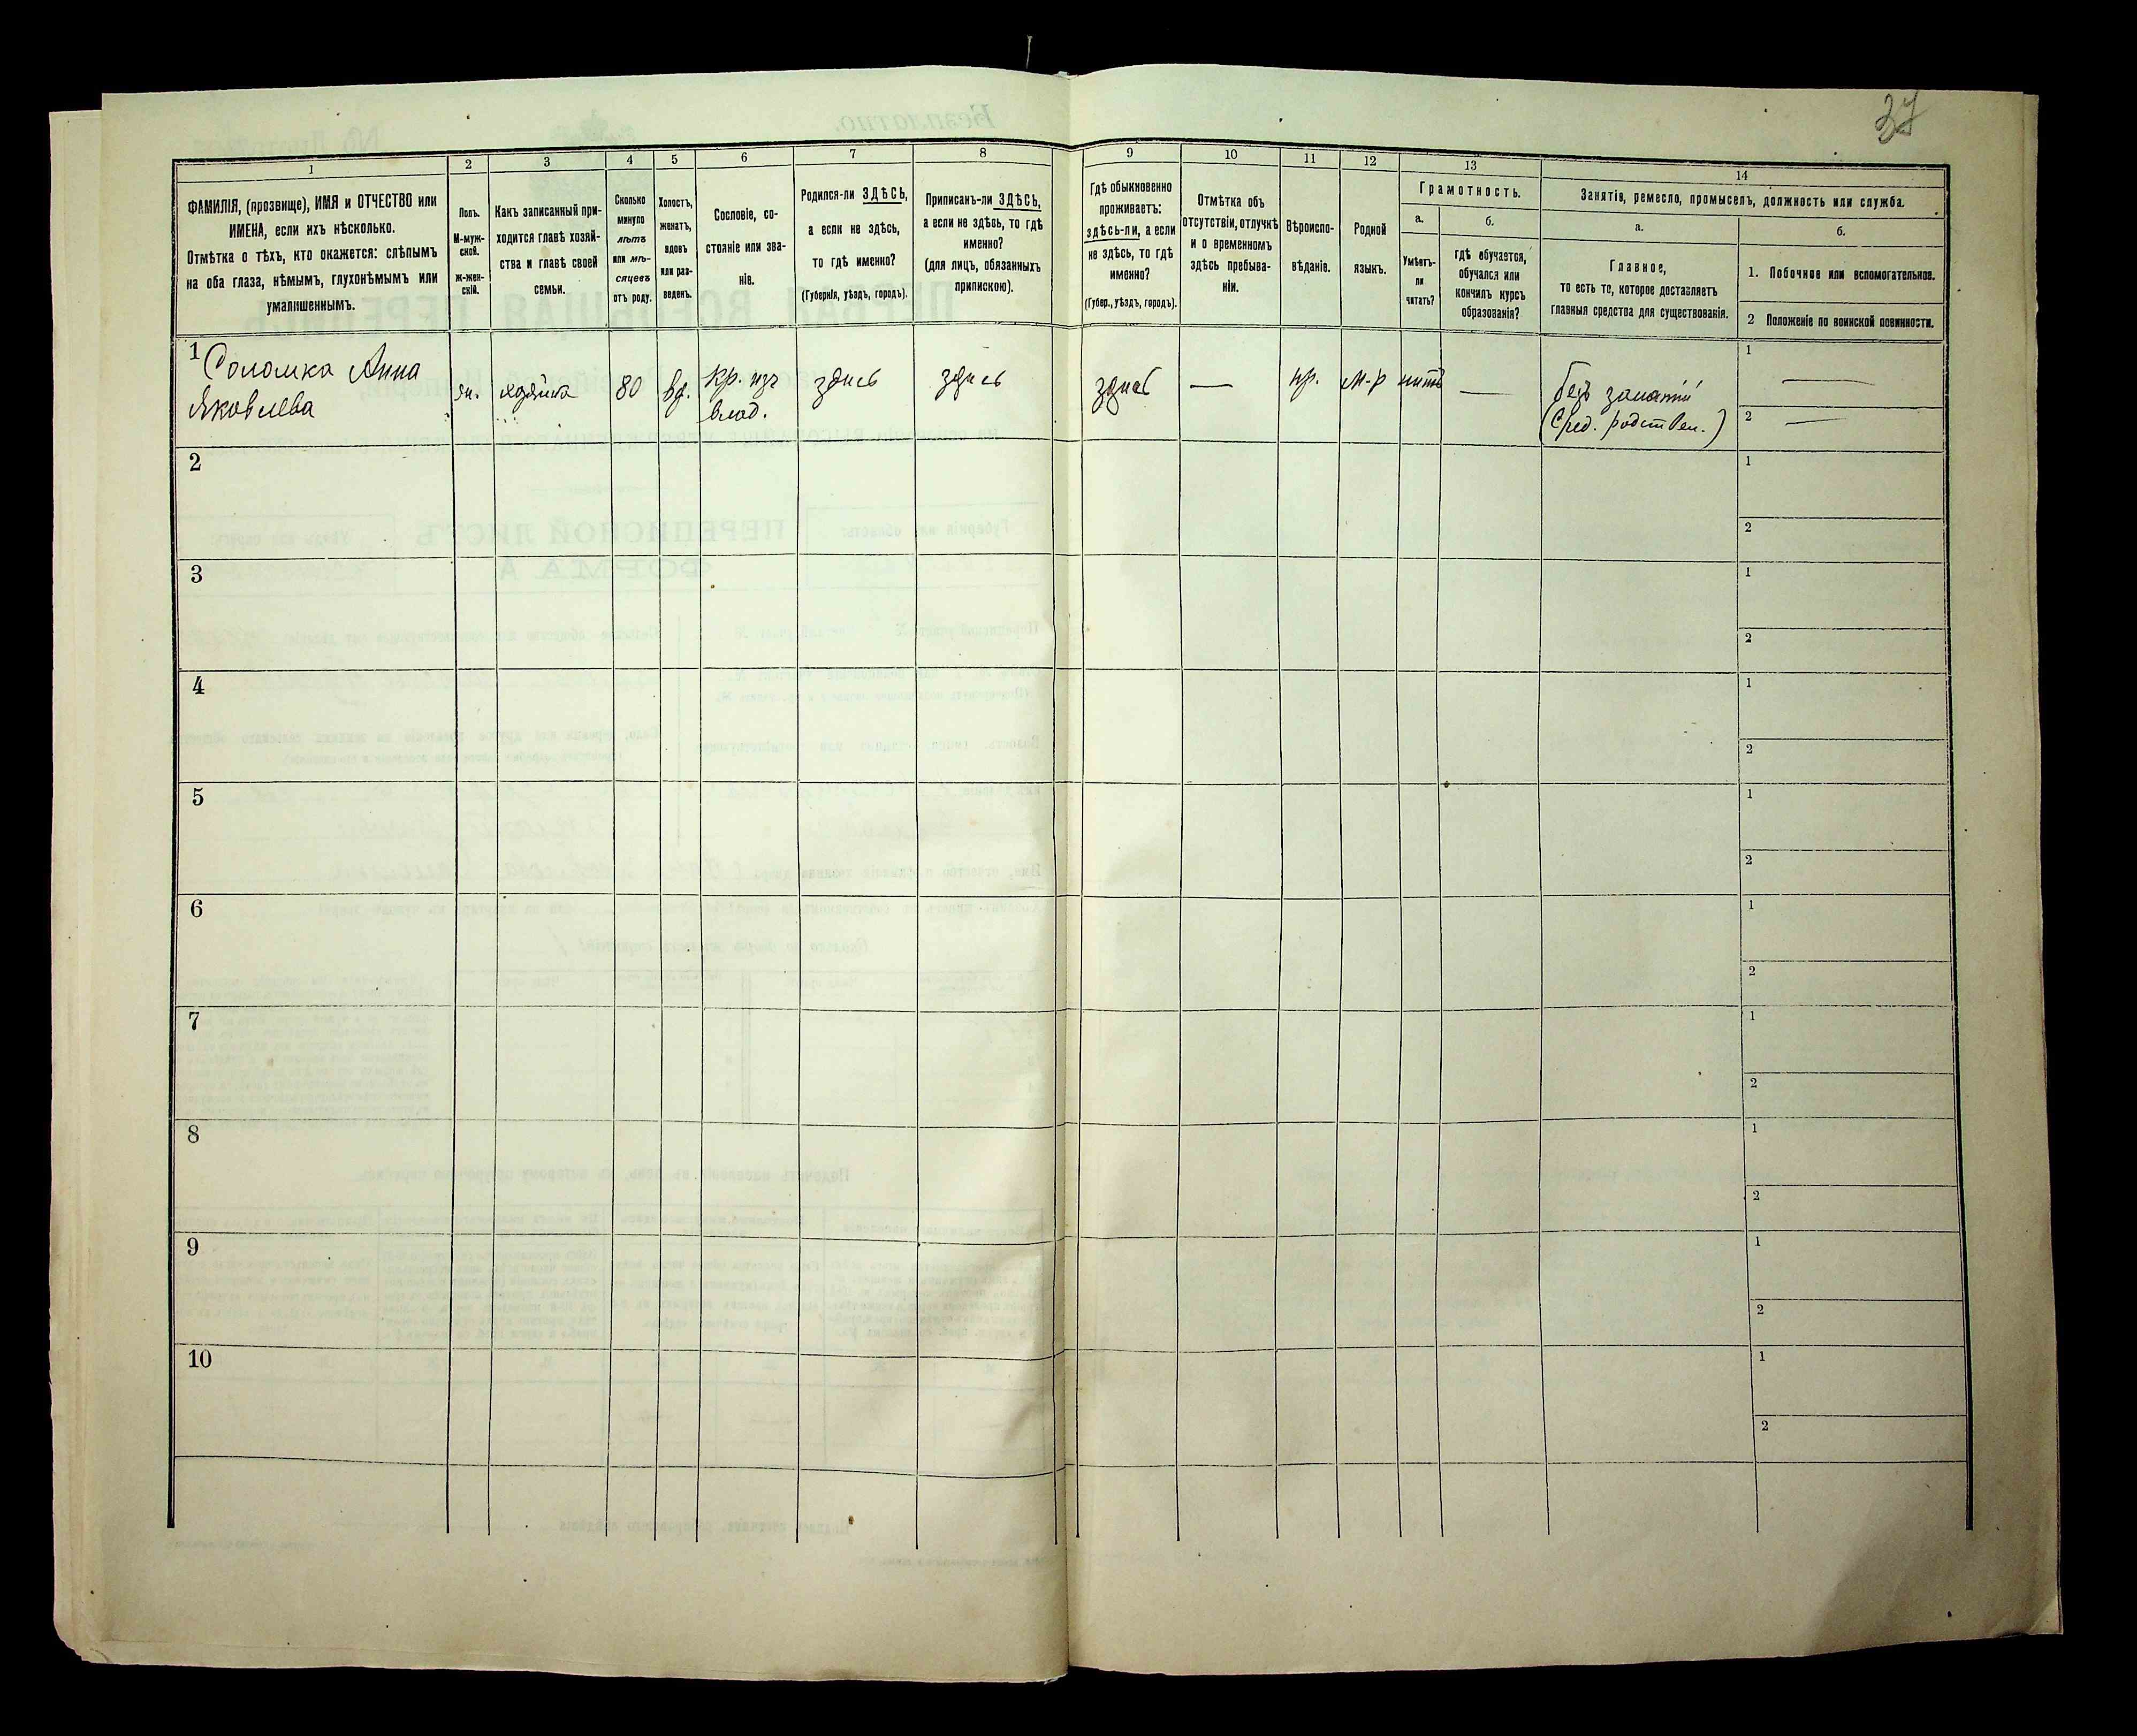 37
1
2
3
4
5
6
7
8
9
10
11
12
13
14
ФАМИЛІЯ, (прозвище), ИМЯ и ОТЧЕСТВО или
ИМЕНА, если ихъ нѣсколько.
Отмѣтка о тѣхъ, кто окажется: слѣпымъ
на оба глаза, нѣмымъ, глухонѣмымъ или
умалишеннымъ.
Полъ.
М-муж-
ской.
Ж-жен-
скій.
Какъ записанный при-
ходится главѣ хозяй-
ства и главѣ своей
семьи.
Сколько
минуло
лѣтъ
или мѣ-
сяцевъ
отъ роду.
Холостъ,
женатъ,
вдовъ
или раз-
веденъ.
Сословіе, со-
стояніе или зва-
ніе.
Родился-ли ЗДѢСЬ,
а если не здѣсь,
то гдѣ именно?
(Губернія, уѣздъ, городъ).
Приписанъ-ли ЗДѢСЬ,
а если не здѣсь, то гдѣ
именно?
(для лицъ, обязанныхъ
припискою).
Гдѣ обыкновенно
проживаетъ:
здѣсь-ли, а если
не здѣсь, то гдѣ
именно?
(Губер., уѣздъ, городъ).
Отмѣтка объ
отсутствіи, отлучкѣ
и о временномъ
здѣсь пребыва-
ніи.
Вѣроиспо-
вѣданіе.
Родной
языкъ.
Грамотность.
а.
Умѣетъ-
ли
читать?
б.
гдѣ обучается,
обучался или
кончилъ курсъ
образованія?
Занятіе, ремесло, промыселъ, должность или служба.
а.
Главное,
то есть то, которое доставляетъ
главныя средства для существованія.
б.
1. Побочное или вспомогательное.
2 Положеніе по воинской повинности.
1 Соломка Анна
Яковлева
жн.
хозяйка
80
вд.
кр. изъ
влад.
здись
здись
здись
—
пр.
м-р
нить
—
безъ занятій
(Сред. родствен.)
1 —
2 —
2
1
2
3
1
2
4
1
2
5
1
2
6
1
2
7
1
2
8
1
2
9
1
2
10
1
2